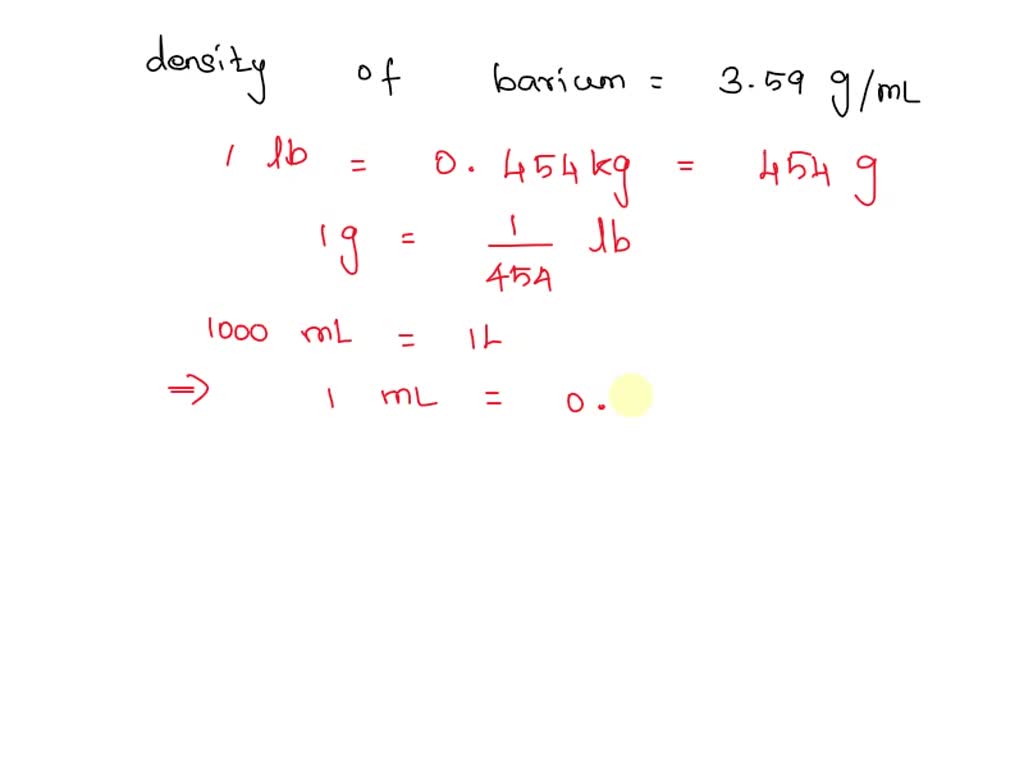 density of barium = 3.59 g/mL
1 lb = 0.454kg = 454 g
1g = 1/454 lb
1000 mL = 1L
⇒ 1 mL = 0.